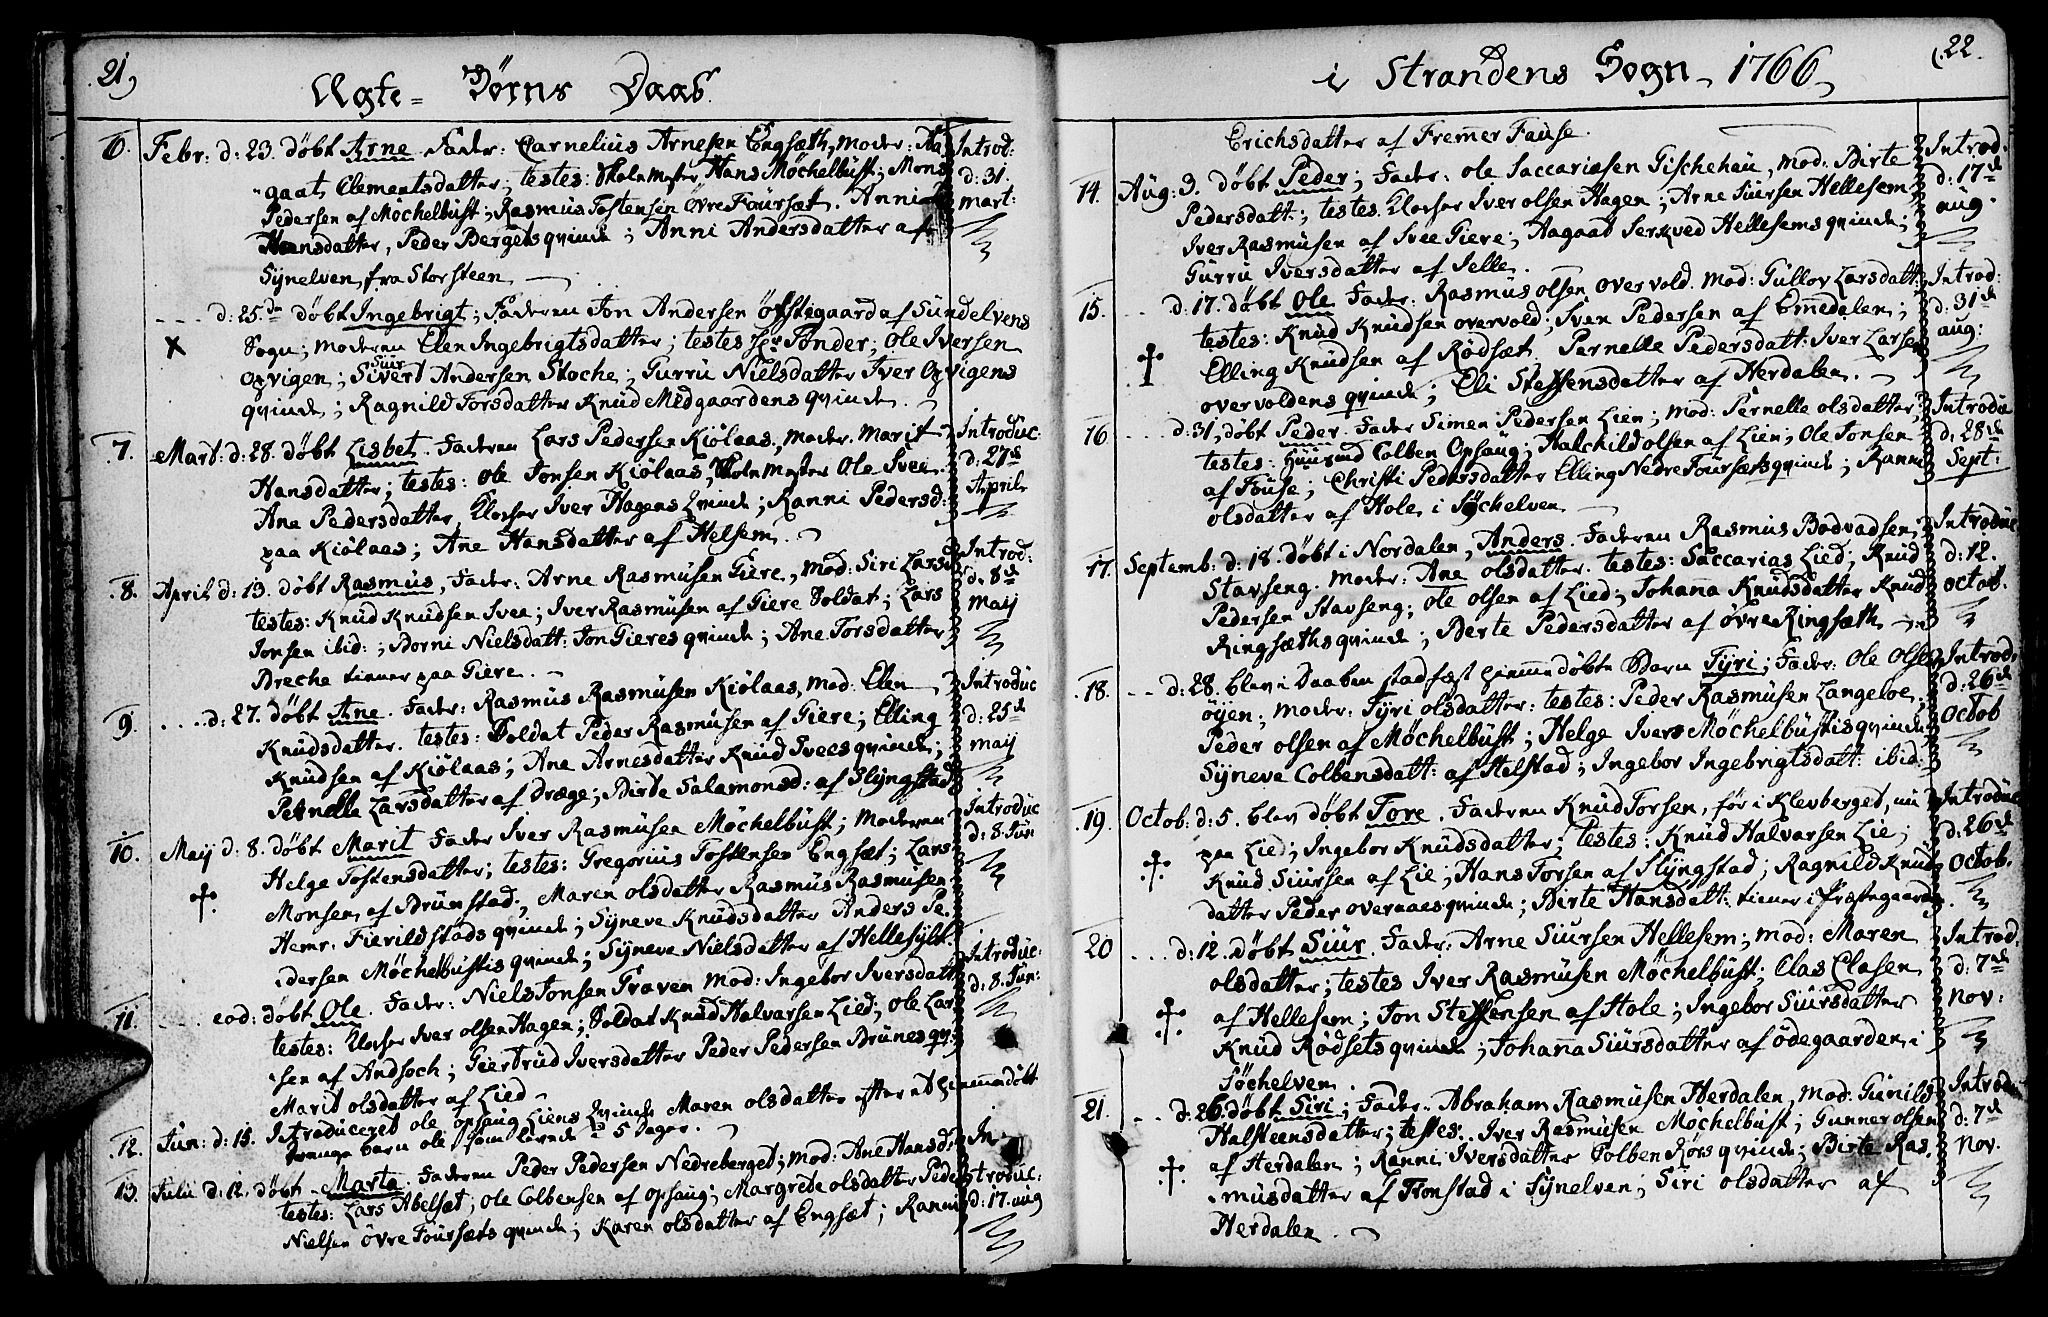 21)
Ægte- Børns Daab
6. Febr: d: 23. døbt Arne. Fader: Carnelius Arnesen Engsæth, Moder: Aa,
gaat Clementsdatter; testes: Skolemester Hans Möchelbust; Mons
Pedersen af Möchelbust; Rasmus Tostensen Øvre Foursæt. Anni
Hansdatter, Peder Bergets qvinde; Anni Andersdatter af
Synelven, fra Storsteen
Introd:
d: 31.
mart:
x
---- d: 25de døbt Ingebrigt; Faderen Jon Andersen Øfstegaard af Sundelvens
Sogn; moderen Elen Ingebrigtsdatter; testes: Hr Tønder; Ole Iversen
Opvigen; Siur Andersen Stoche; Gurru Nielsdatter Iver Opvigens
qvinde; Ragnild Torsdatter Knud Medgaardens qvinde.
7. Mart: d: 28. døbt Lisbet. Faderen Lars Pedersen Kiölaas, Moder. Marit
Hansdatter; testes: Ole Jonsen Kiölaas, Skolemester Ole Svee.
Ane Pedersdatter, Klocker Iver Hagens Qvinde; Ranni Pedersd:
paa Kiölaas; Ane Hansdatter af Helsem.
Introduc:
d: 27de
April
8. April d: 13. døbt Rasmus, Fader: Arne Rasmusen Giere, Mod: Siri Larsd:
testes: Knud Knudsen Svee; Iver Rasmusen af Giere Soldat; Lars
Jonsen ibid:; Borni Nielsdatt: Jon Gieres qvinde; Ane Torsdatter
Breche tiener paa Giere.
Introd:
d: 8de
Maij
9. ....d: 27. døbt Ane. Fader: Rasmus Rasmusen Kiölaas, Mod: Elen
Knudsdatter. testes: Soldat Peder Rasmusen af Giere; Elling
Knudsen af Kiölaas; Ane Arnesdatter Knud Svees qvinde;
Pernelle Larsdatter af Dræge; Birde Salamonsd: af Slyngstad
Introduc
d: 25de
maij
10. Maij d: 8. døbt Marit Fader Iver Rasmusen Möchelbust; Moderen
Helge Tostensdatter; testes: Gregorius Tostensen Engsæt; Lars
Monsen af Brunstad; Maren Olsdatter Rasmus Rasmusen
Hemr. Fierildstads qvinde; Syneve Knudsdatter Anders Pe,
dersen Möchelbustis qvinde; Syneve Nielsdatter af Hellesylt.
Introduc
d: 8. Jun:
11. ---- eod: døbt Ole. Fader: Niels Jonsen Traven Mod: Ingebor Iversdatt
testes: Klocker Iver olsen Hagen; Soldat Knud Halvarsen Lied; Ole Lar
sen af Andsoch; Giertrud Iversdatter Peder Pedersen Brunes qv:
Marit olsdatter af Lied
Introduc:
d: 8. Jun:
12. Jun: d: 15. Introduceret ole opsaug Liens Qvinde Maren olsdatter efter et hiemmedøbt
drenge barn ole som levede i 5 Dager.
13. Julii d: 12. døbt Marta. Faderen Peder Pedersen Nedreberget; Mod: Ane Hansd:
testes: Lars Abelsæt; ole Colbensen af opsaug; Margrete olsdatter Peder
Nielsen øvre Foursæts qvinde; Karen olsdatter af Engsæt; Ranni
In
troduc:
d: 17. aug
i Strandens Sogn, 1766,
(22.
Erichsdatter af Fremer Fause.
14. Aug: 3. døbt Peder; Fader: ole Saccariasen Gischehau, Mod: Birte
Pedersdatt:; testes. Klocker Iver olsen Hagen; Arne Siursen Hellesem,
Iver Rasmusen af Svee Giere; Aagaat Serkved Hellesems qvinde;
Gurru Iversdatter af Selle.
Introd:
d: 17de
aug.
15. ... d: 17. døbt Ole Fader: Rasmus olsen overvold. Mod: Gullov Larsdatt.
testes: Knud Knudsen overvold; Sven Pedersen af Emedalen;
Elling Knudsen af Rødsæt. Pernelle Pedersdatt: Iver Larsen
overvoldens qvinde; Eli Steffensdatter af Herdalen.
Introd:
d: 31de
aug:
16 ... d: 31, døbt Peder. Fader Simen Pedersen Lien; Mod: Pernelle olsdatter;
testes: Colben Opsaug; Halchild olsen af Lien; Ole Jonsen
af Fouse; Christi Pedersdatter Elling Nedre Foursæts qvinde; Ranni
olsdatter af Hole i Søchelven
Introduc
d: 28de
Sept:
17. Septemb: d: 18. døbt i Nordalen, Anders. Faderen Rasmus Bodvadsen
Stavseng. Moder: Ane olsdatter. testes: Saccarias Lied; Knud
Pedersen Stavseng; Ole olsen af Lied; Johanna Knudsdatter Knud
Ringsæths qvinde; Berte Pedersdatter af øvre Ringsæth
Introduc
d: 12.
octob.
18. --- d: 28. blev i Daaben stadfæst hiemmedøbte Barn Tyri; Fader: Ole Olsen
öyen; Moder: Tyri olsdatter: testes: Peder Rasmusen Langeloe;
Peder olsen af Möchelbust; Helge Ivers Möchelbustis qvinde
Syneve Colbensdatt: af Helstad; Ingebor Ingebrigtsdatt: ibid:
Introd:
d: 26de
Octob
19. Octob: d: 5. blev døbt Tore. Faderen Knud Torsen, før i Klevberget, nu
paa Lied; Ingebor Knudsdatter; testes: Knud Halvarsen Lie;
Knud Siursen af Lie; Hans Torsen af Slyngstad; Ragnild Knuds
datter Peder overaaes qvinde; Birte Hansdatt: tiener i Præstegaarden.
Introduc
d: 26de
Octob.
20 ... d: 12. Døbt Siur. Fader: Arne Siursen Hellesem; Mod: Maren
olsdatter; testes Iver Rasmusen Möchelbust; Clas Clasen
af Hellesem; Jon Steffensen af Hole; Ingebor Siursdatter
Knud Rødsets qvinde; Johanna Siursdatter af ødegaarden i
Søchelven.
Introd.
d: 7de
Nov:
21. .. d: 26. døbt Siri; Fader: Abraham Rasmusen Herdalen, Mod: Gunild
Halsteensdatter; testes: Iver Rasmusen Möchelbust; Gunner olsen
af Herdalen; Ranni Iversdatter Tolben Rørs qvinde; Birte Ras,
musdatter af Tronstad i Synelven; Siri olsdatter af
Herdalen.
Introdu
d: 7de
Nov.